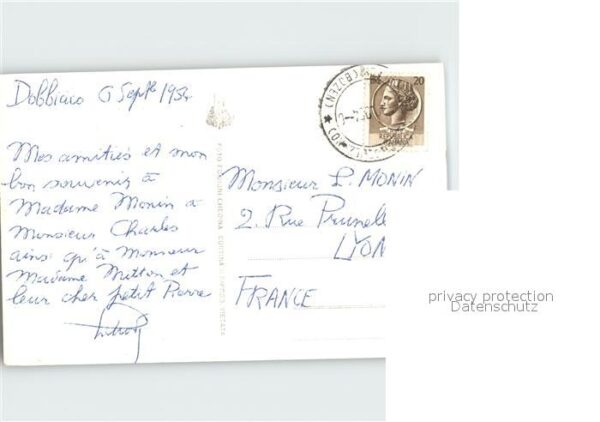 Dobbiaco 6 Septbre 1954
20
(BOZEN)
REPUBBLICA
ITALIANA
Mes amitiés et mon
bon souvenir à
Madame Monin à
Monsieur Charles
ainsi qu'à Monsieur
Madame Mitton et
leur cher petit Pierre
Monsieur L. MONIN
2. Rue Prunelle
LYON
FRANCE
privacy protection
Datenschutz